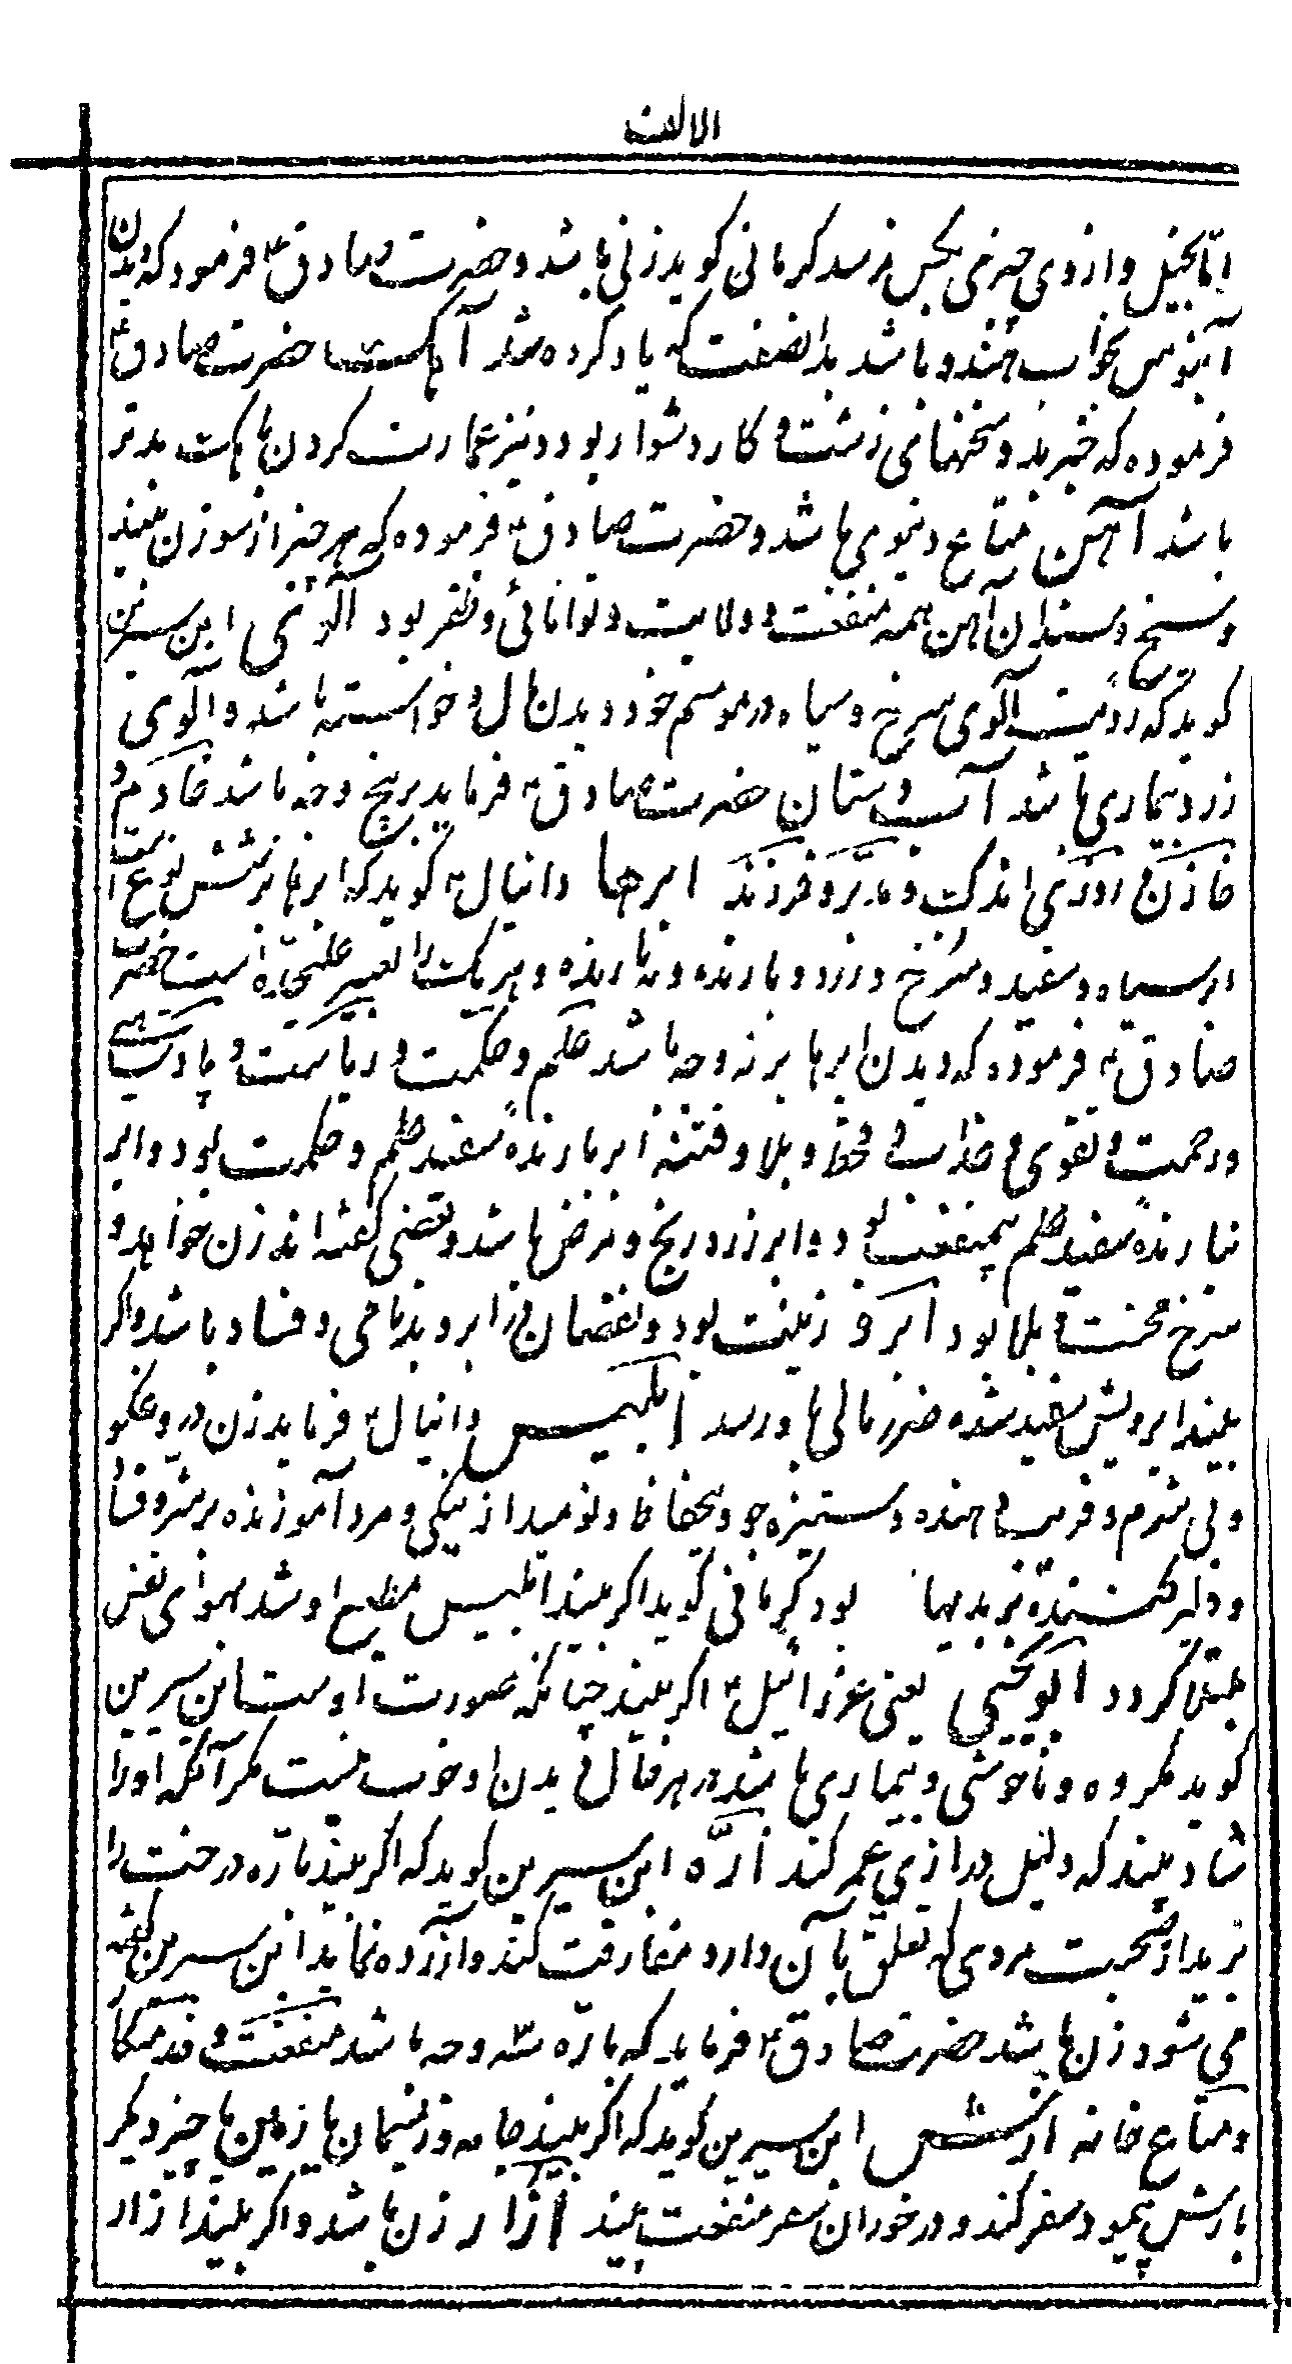 الالف
اما بخیل و ازوی چیزی بکس نرسد کرمانی کوید زنی باشد و حضرت صادق ع فرمود که دیدن
آبنوس بخواب جهد و باشد بدانصفت که یاد کرده شد آهکست حضرت صادق ع
فرموده که خبر بد و سخنهای زشت و کار دشوار بود و نیز عمارت کردن باهکست بدتر
باشد آهن متاع دنیوی باشد و حضرت صادق ع فرموده که هر چیز از سوزن بیند
و سیخ و سندان آهن همه منفعت و ولایت و توانائی و ظفر بود آلوئی ابن سیرین
کوید که رؤیت آلوی سرخ و سیاه در موسم خود دیدن مال و خواسته باشد و آلوی
زرد بیماری باشد آب دستان حضرت صادق ع فرماید بر پنج وجه باشد خادم و
خازن و روزی اندک و مدبر و فرزند ابرها دانیال ع کوید که ابرها بر شش نوع است
ابر سیاه و سفید و سرخ و زرد و بارنده و نه بارنده و هر یک را تعبیر علیحده است حضرت
صادق ع فرموده که دیدن ابرها بر نه وجه باشد حکم و حکمت و ریاست و پادشاهی
و رحمت و تقوی و عذاب و قحط و بلا و فتنه ابر بارنده سفید حلم و حکمت بود و ابر
نبارنده سفید حلم بیمنفعت بود و ابر زرد رنج و مرض باشد و بعضی کفته اند زن خواهد و
سرخ محنت و بلا بود ابرو زینت بود و نقصان در ابرو بدنامی و فساد باشد و اکر
بیند ابرویش سفید شده ضرر مالی باو رسد ابلیس دانیال ع فرماید زن دروغکو
و بی شرم و فریب دهنده و ستیزه جو و بیحفاظ و نومید از نیکی و مرد آموزنده بر شر و فساد
و دلیر کننده بر بدیها بود کرمانی کوید اکر بیند ابلیس مطیع او شد بهوای نفس
مبتلا کردد ابویحیی یعنی عزرائیل ع اکر بیند چنانکه صورت اوست ابن سیرین
کوید مکروه و ناخوشی و بیماری باشد در هر حال دیدن او خوب نیست مکر آنکه او را
شاد بیند که دلیل درازی عمر کند ارّه ابن سیرین کوید که اکر بیند باره درخت را
برید از صحبت مردی که تعلق بآن دارد مفارقت کند و آزرده نماید ابن سیرین کفته
می شود زن باشد حضرت صادق ع فرماید که باره سه وجه باشد منفعت و خدمتکار
و متاع خانه ارش ابن سیرین کوید که اکر بیند جامه و ریسمان یا زمین یا چیز دیکر
بارش پیمود سفر کند و در خور آن سفر منفعت بیند ازار زن باشد و اکر بیند ازار